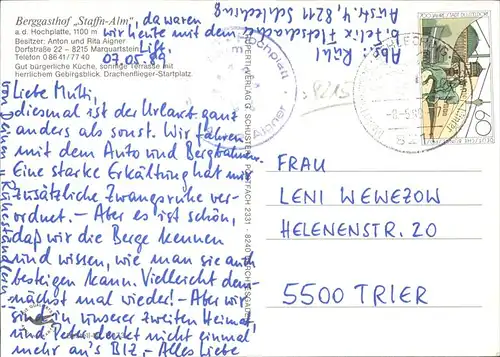 Berggasthof „Staffn-Alm"
a. d. Hochplatte, 1100 m
Besitzer: Anton und Rita Aigner
Dorfstraße 22 – 8215 Marquartstein
Telefon 08641/7740
Gut bürgerliche Küche, sonnige Terrasse mit
herrlichem Gebirgsblick. Drachenflieger-Startplatz.
da waren
wir heute mit dem
Lift.
07.05.89
Abs.: Rühl
b. Felix Fletschacher
Austr. 4, 8211 Schleching
Liebe Mutti,
diesmal ist der Urlaub ganz
anders als sonst. Wir fahren
mit dem Auto und Bergbahnen.
Eine starke Erkältung hat mir
zusätzliche Zwangsruhe ver-
ordnet. – Aber es ist schön,
daß wir die Berge kennen
und wissen, wie man sie auch
besteigen kann. Vielleicht dem-
nächst mal wieder! – Aber wir
sind in unserer zweiten Heimat,
und Peter denkt nicht einmal
mehr an's BIZ, – Alles Liebe
von Deinen 2 Ruheständlern!
Hochplatte
Aigner
8215
60
FRAU
LENI WEWEZOW
HELENENSTR. 20
5500 TRIER